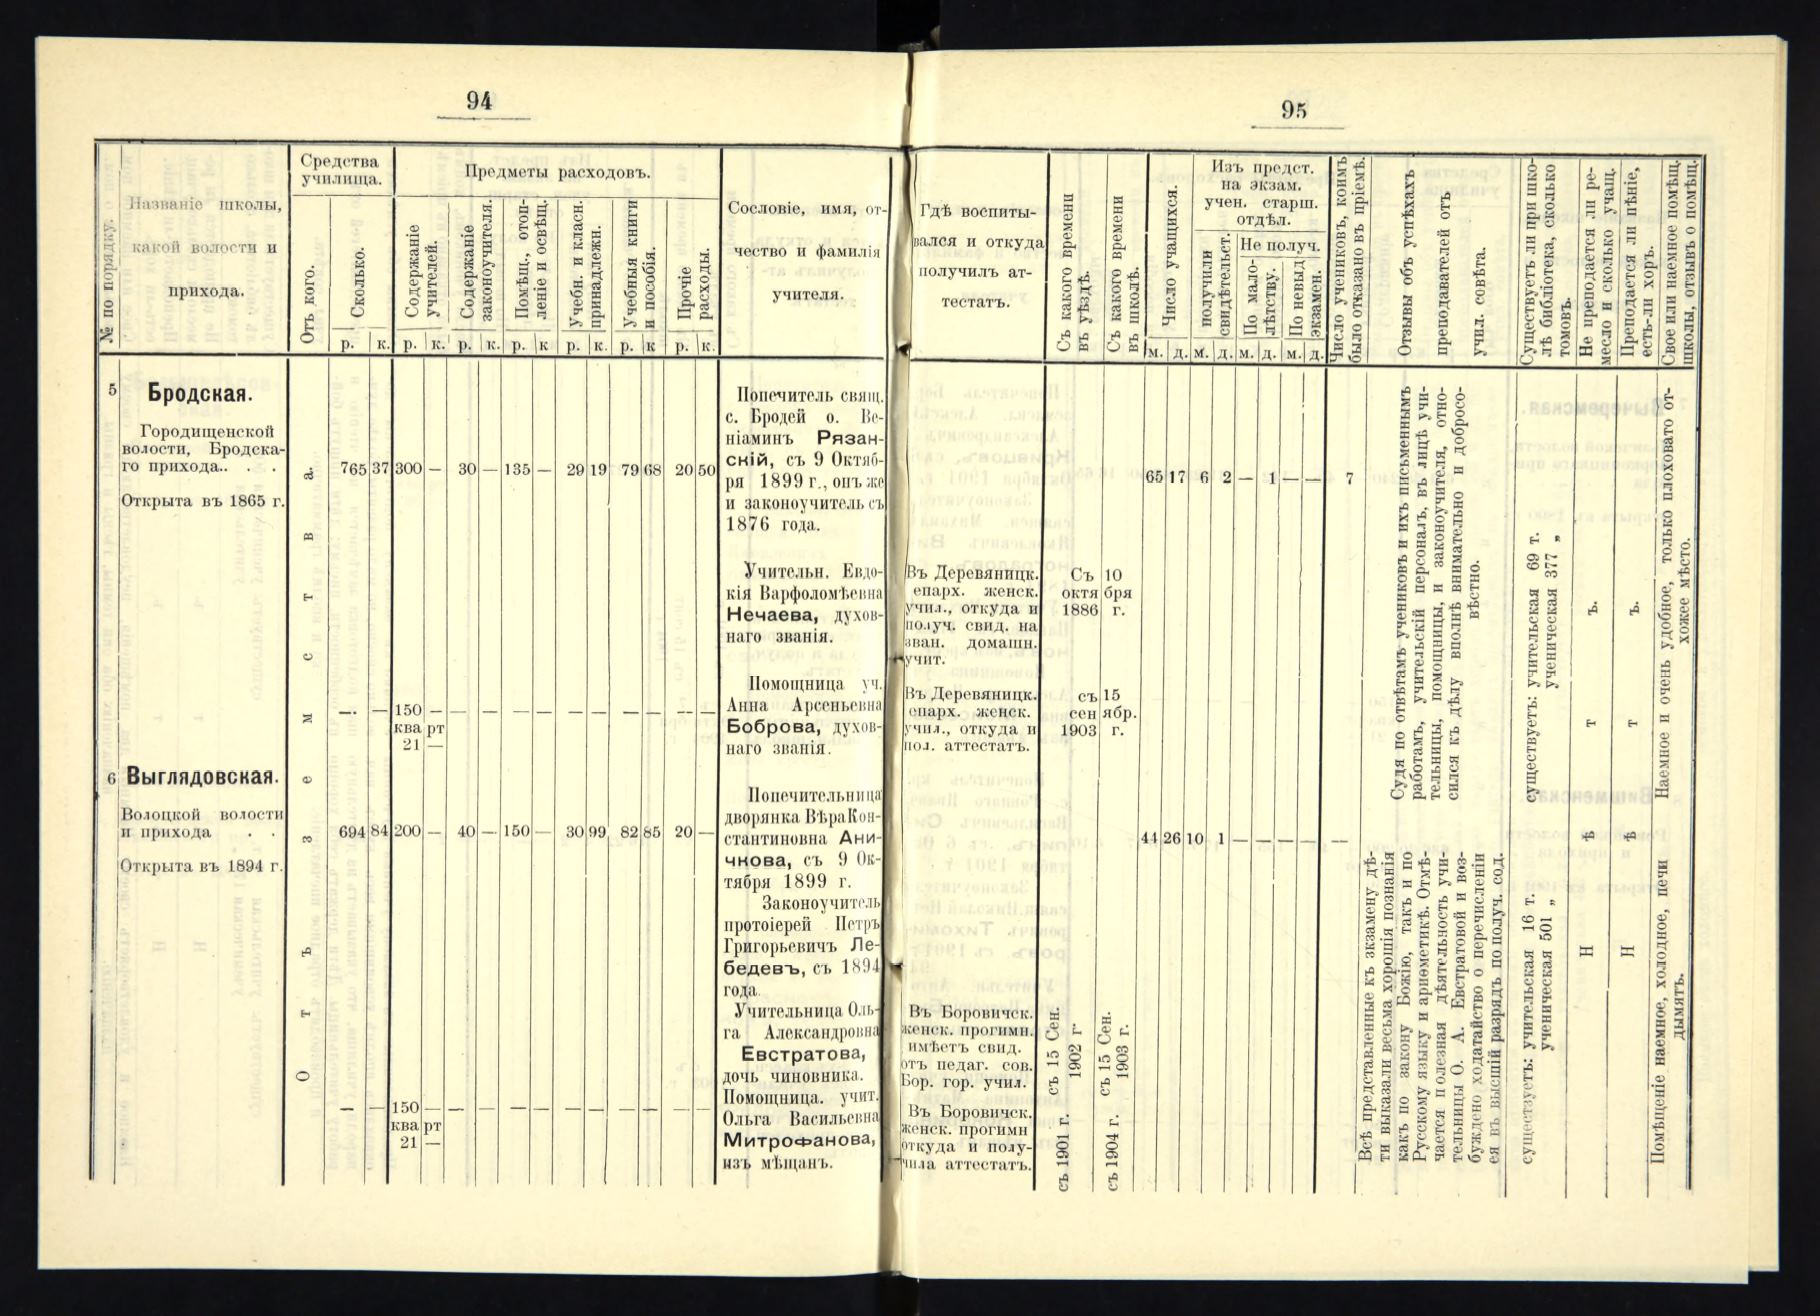 94
№ по порядку.
Названіе школы,
какой волости и
прихода.
Средства
училища.
Отъ кого.
Сколько.
р. к.
Предметы расходовъ.
Содержаніе
учителей.
р. к.
Содержаніе
законоучителя.
р. к.
Помѣщ., отоп-
леніе и освѣщ.
р. к
Учебн. и класн.
принадлежн.
р. к.
Учебныя книги
и пособія.
р. к
Прочіе
расходы.
р. к.
Сословіе, имя, от-
чество и фамилія
учителя.
5
Бродская.
Городищенской
волости, Бродска-
го прихода.. . .
Открыта въ 1865 г.
Отъ земства.
765 37 300 — 30 — 135 — 29 19 79 68 20 50
Попечитель свящ.
с. Бродей о. Ве-
ніаминъ Рязан-
скій, съ 9 Октяб-
ря 1899 г., онъ же
и законоучитель съ
1876 года.
Учительн. Евдо-
кія Варфоломѣевна
Нечаева, духов-
наго званія.
— — 150 — — — — — — — — — — —
ква рт
21 —
Помощница уч.
Анна Арсеньевна
Боброва, духов-
наго званія.
6 Выглядовская.
Волоцкой волости
и прихода . .
Открыта въ 1894 г.
694 84 200 — 40 — 150 — 30 99 82 85 20 —
Попечительница
дворянка Вѣра Кон-
стантиновна Ани-
чкова, съ 9 Ок-
тября 1899 г.
Законоучитель
протоіерей Петръ
Григорьевичъ Ле-
бедевъ, съ 1894
года.
Учительница Оль-
га Александровна
Евстратова,
дочь чиновника.
— — 150 — — — — — — — — — — —
ква рт
21 —
Помощница. учит.
Ольга Васильевна
Митрофанова,
изъ мѣщанъ.
95
Гдѣ воспиты-
вался и откуда
получилъ ат-
тестатъ.
Съ какого времени
въ уѣздѣ.
Съ какого времени
въ школѣ.
Число учащихся.
м. д.
Изъ предст.
на экзам.
учен. старш.
отдѣл.
получили
свидѣтельст.
м. д.
Не получ.
По мало-
лѣтству.
м. д.
По невыд
экзамен.
м. д.
Число учениковъ, коимъ
было отказано въ пріемѣ.
Отзывы объ успѣхахъ
преподавателей отъ
учил. совѣта.
Существуетъ ли при шко-
лѣ библіотека, сколько
томовъ.
Не преподается ли ре-
месло и сколько учащ.
Преподается ли пѣніе,
есть-ли хоръ.
Свое или наемное помѣщ.
школы, отзывъ о помѣщ.
65 17 6 2 — 1 — — 7
Въ Деревяницк.
епарх. женск.
учил., откуда и
получ. свид. на
зван. домашн.
учит.
Съ 10
октя бря
1886 г.
Въ Деревяницк.
епарх. женск.
учил., откуда и
пол. аттестатъ.
съ 15
сен ябр.
1903 г.
Судя по отвѣтамъ учениковъ и ихъ письменнымъ
работамъ, учительскій персоналъ, въ лицѣ учи-
тельницы, помощницы, и законоучителя, отно-
сился къ дѣлу вполнѣ внимательно и добросо-
вѣстно.
существуетъ: учительская 69 т.
ученическая 377 „
Нѣтъ.
Нѣтъ.
Наемное и очень удобное, только плоховато от-
хожее мѣсто.
44 26 10 1 — — — — —
Въ Боровичск.
женск. прогимн.
имѣетъ свид.
отъ педаг. сов.
Бор. гор. учил.
съ 15 Сен.
1902 г
съ 15 Сен.
1903 г.
Въ Боровичск.
женск. прогимн
откуда и полу-
чила аттестатъ.
съ 1901 г.
съ 1904 г.
Всѣ представленные къ экзамену дѣ-
ти выказали весьма хорошія познанія
какъ по закону Божію, такъ и по
Русскому языку и ариѳметикѣ. Отмѣ-
чается полезная дѣятельность учи-
тельницы О. А. Евстратовой и воз-
буждено ходатайство о перечисленіи
ея въ высшій разрядъ по получ. сод.
существуетъ: учительская 16 т.
ученическая 501 „
Помѣщеніе наемное, холодное, печи
дымятъ.